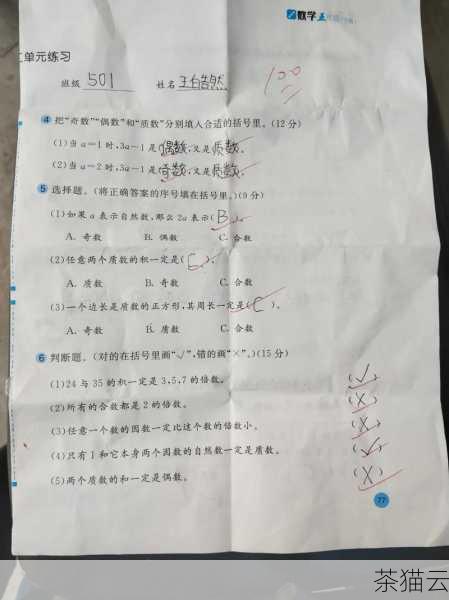 数学五年级
二单元练习
班级 501 姓名 王皓然
100
4 把“奇数”“偶数”和“质数”分别填入合适的括号里。(12分)
(1)当a=1时,3a-1是(偶数),又是(质数)。
(2)当a=2时,3a-1是(奇数),又是(质数)。
5 选择题。(将正确答案的序号填在括号里。)(9分)
(1)如果a表示自然数,那么2a表示(B)。
A. 奇数 B. 偶数 C. 合数
(2)任意两个质数的积一定是(C)。
A. 质数 B. 奇数 C. 合数
(3)一个边长是质数的正方形,其周长一定是(C)。
A. 奇数 B. 质数 C. 合数
6 判断题。(对的在括号里画“√”,错的画“×”。)(15分)
(1)24与35的积一定是3,5,7的倍数。 (√)
(2)所有的合数都是2的倍数。 (×)
(3)任意一个数的因数一定比这个数的倍数小。 (×)
(4)只有1和它本身两个因数的自然数一定是质数。 (√)
(5)两个质数的和一定是偶数。 (×)
77
茶猫云